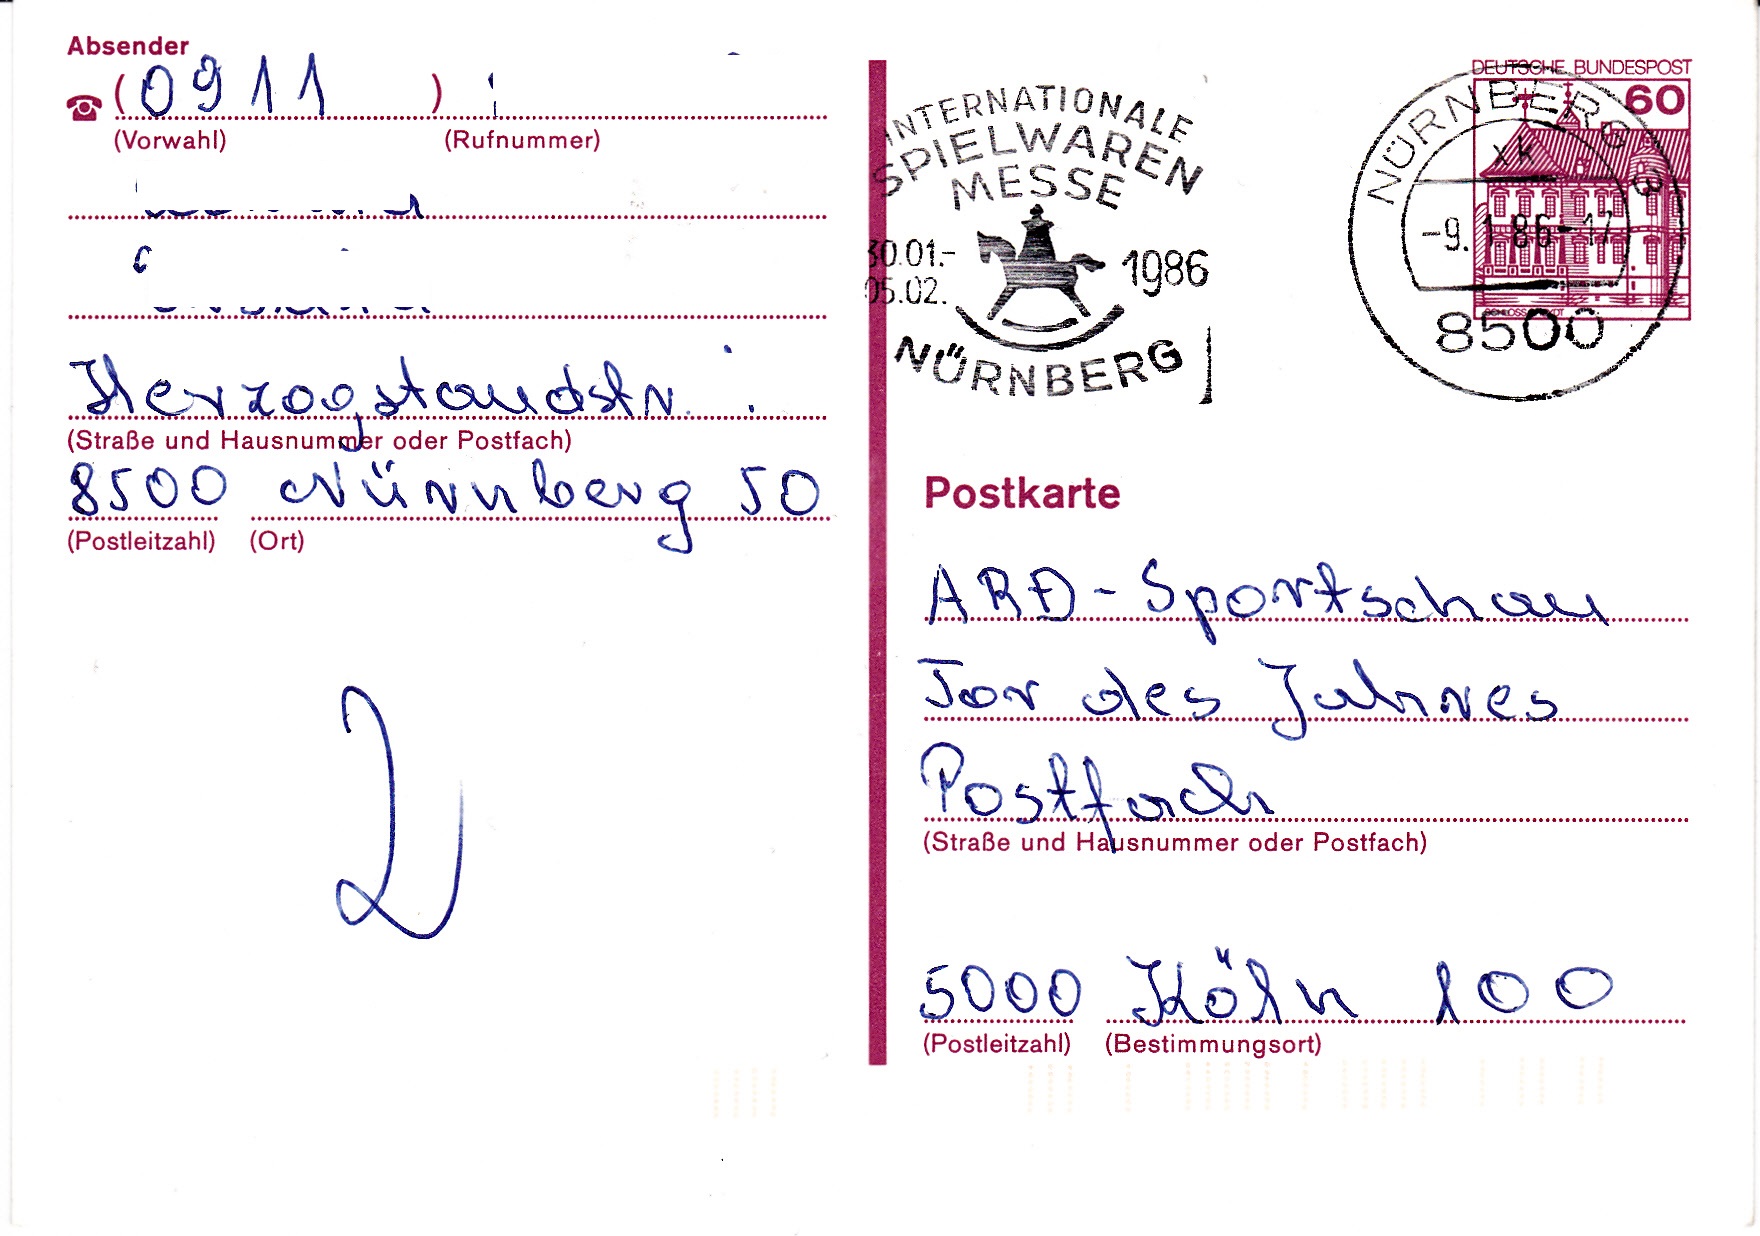 Absender
(0911)
(Vorwahl) (Rufnummer)
Herzogstandstr.
(Straße und Hausnummer oder Postfach)
8500 Nürnberg 50
(Postleitzahl) (Ort)
2
INTERNATIONALE
SPIELWAREN
MESSE
30.01.-
05.02.
1986
NÜRNBERG
DEUTSCHE BUNDESPOST
60
NÜRNBERG 3
xk
-9.1.86-17
8500
Postkarte
ARD-Sportschau
Tor des Jahres
Postfach
(Straße und Hausnummer oder Postfach)
5000 Köln 100
(Postleitzahl) (Bestimmungsort)